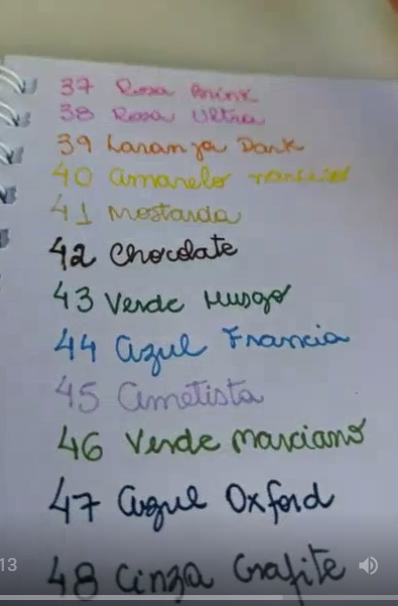 37 Rosa Brink
38 Rosa Ultra
39 Laranja Dark
40 amarelo
41 Mostarda
42 chocolate
43 Verde Musgo
44 azul Francia
45 ametista
46 Verde marciano
47 azul Oxford
13
48 cinza Grafite